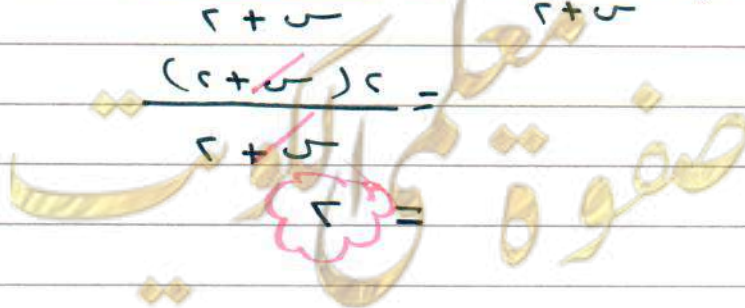 س + ٢    س + ٢
= ٢ ( س + ٢ )
س + ٢
= ٢
صفوة معلمي الكويت